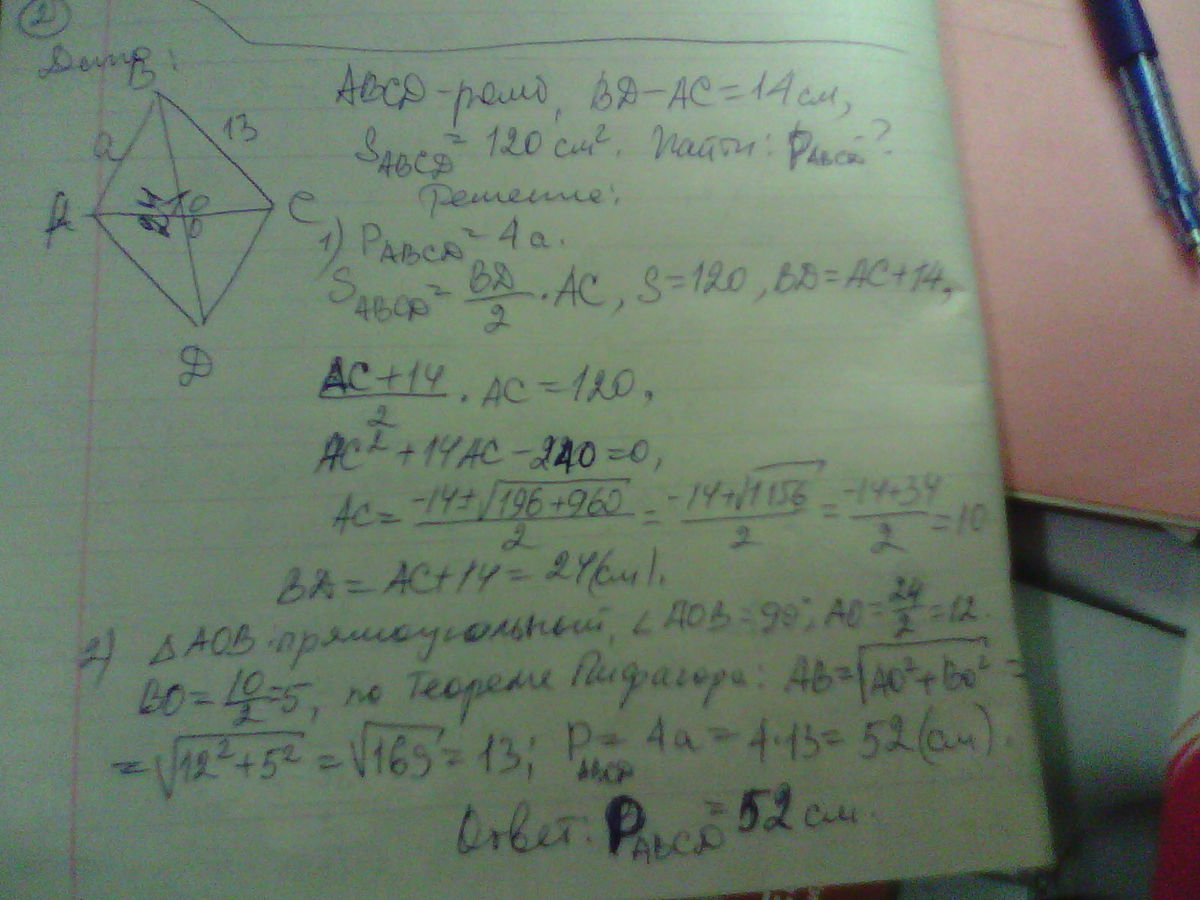 2
Дано:
B
a
13
A
24
10
O
C
D
ABCD-ромб, BD-AC=14см,
S ABCD = 120 см². Найти: P ABCD -?
Решение:
1) P ABCD = 4a.
S ABCD = BD/2 · AC, S=120, BD=AC+14,
AC+14/2 · AC = 120,
AC² + 14AC - 240 = 0,
AC = -14±√196+960/2 = -14+√1156/2 = -14+34/2 = 10
BD = AC+14 = 24(см).
2) △AOB-прямоугольный, ∠AOB=90°; AO = 24/2 = 12.
BO = 10/2 = 5, по Теореме Пифагора: AB=√AO²+BO² =
= √12²+5² = √169 = 13; P ABCD = 4a = 4·13 = 52(см).
Ответ: P ABCD = 52 см.